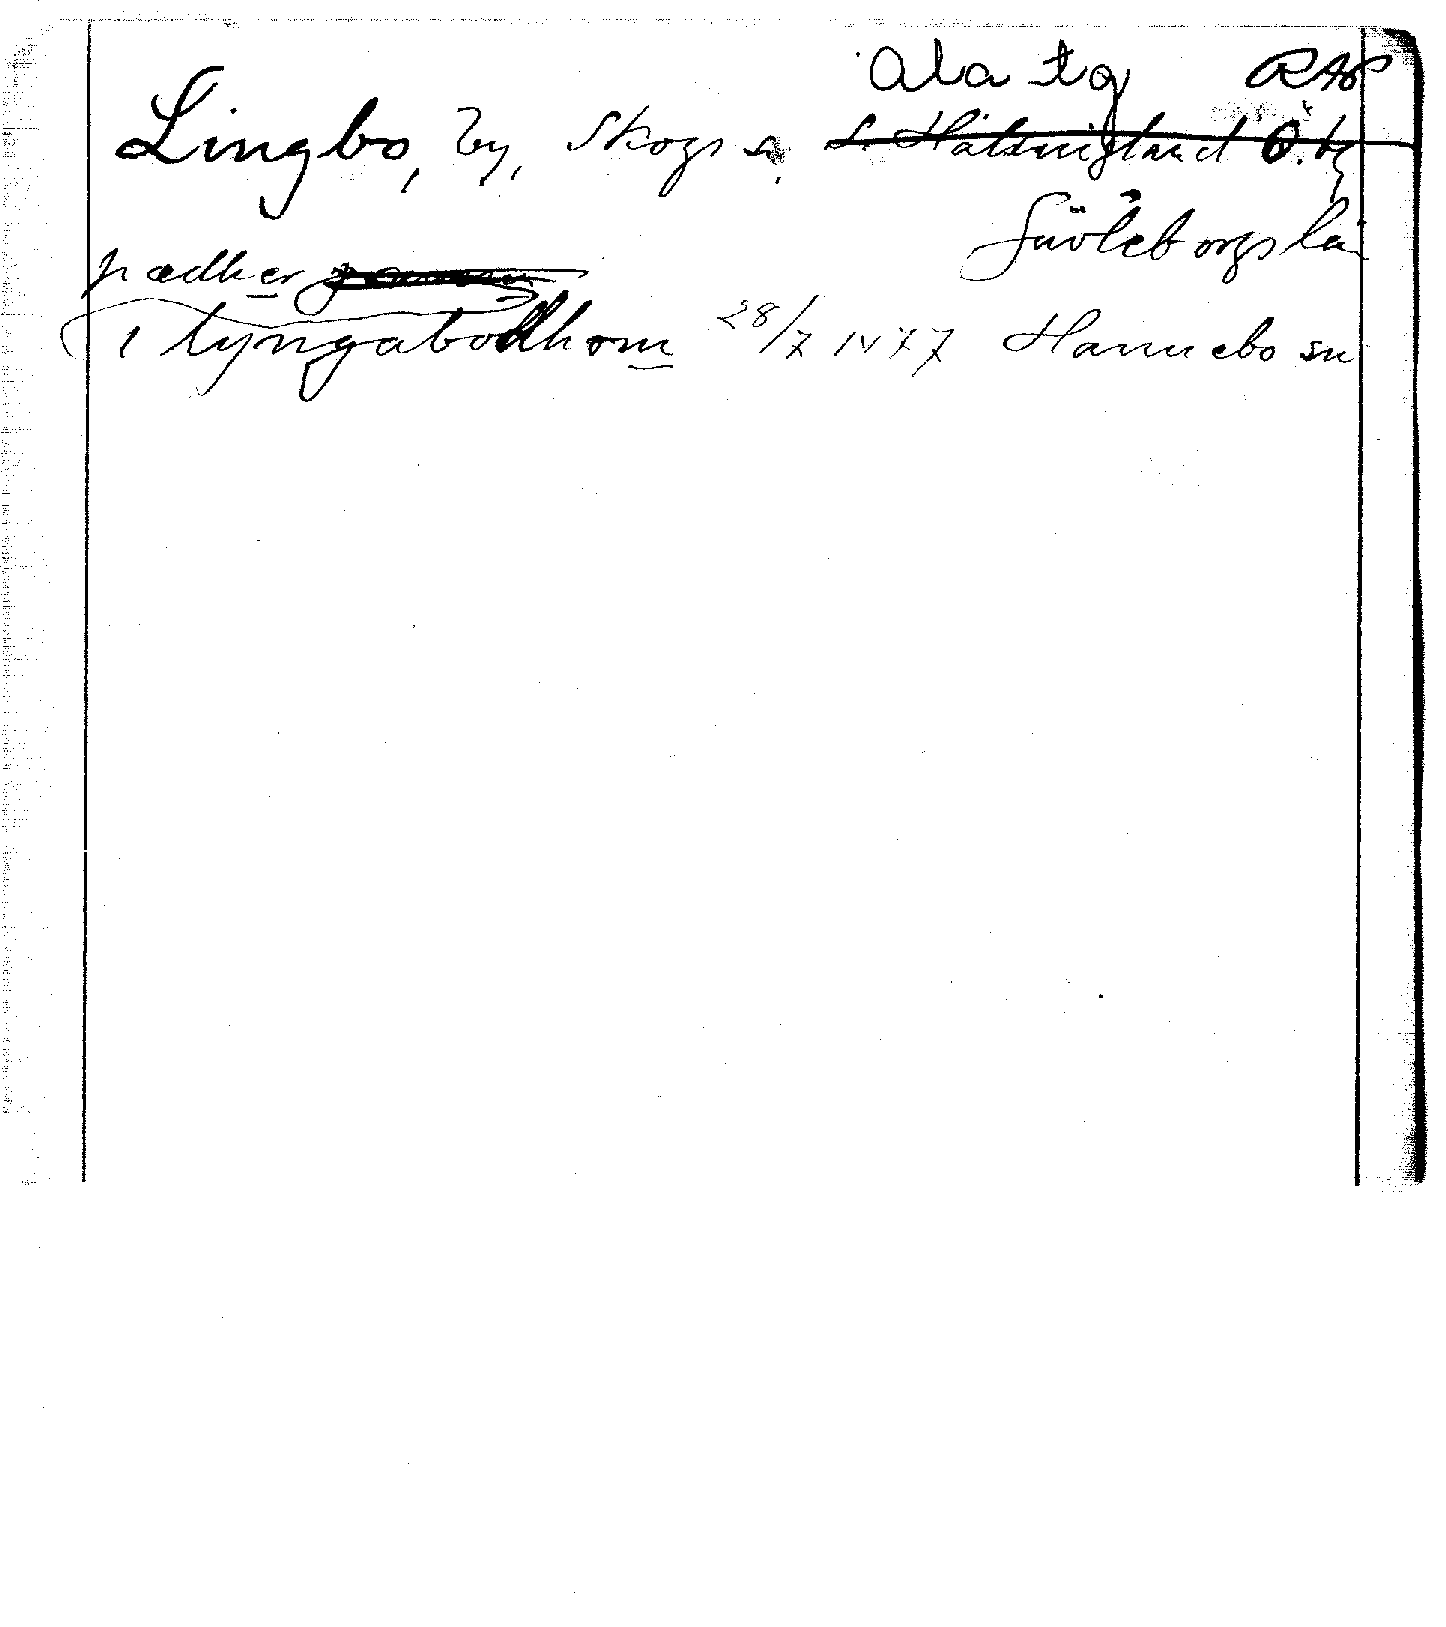 Ala tg RAp
Lingbo, by, Skogs s. S. Hälsingland Ö. tg
Gävleborgs län
pædher
i lyngabodhom 28/7 1477 Hannebo sn